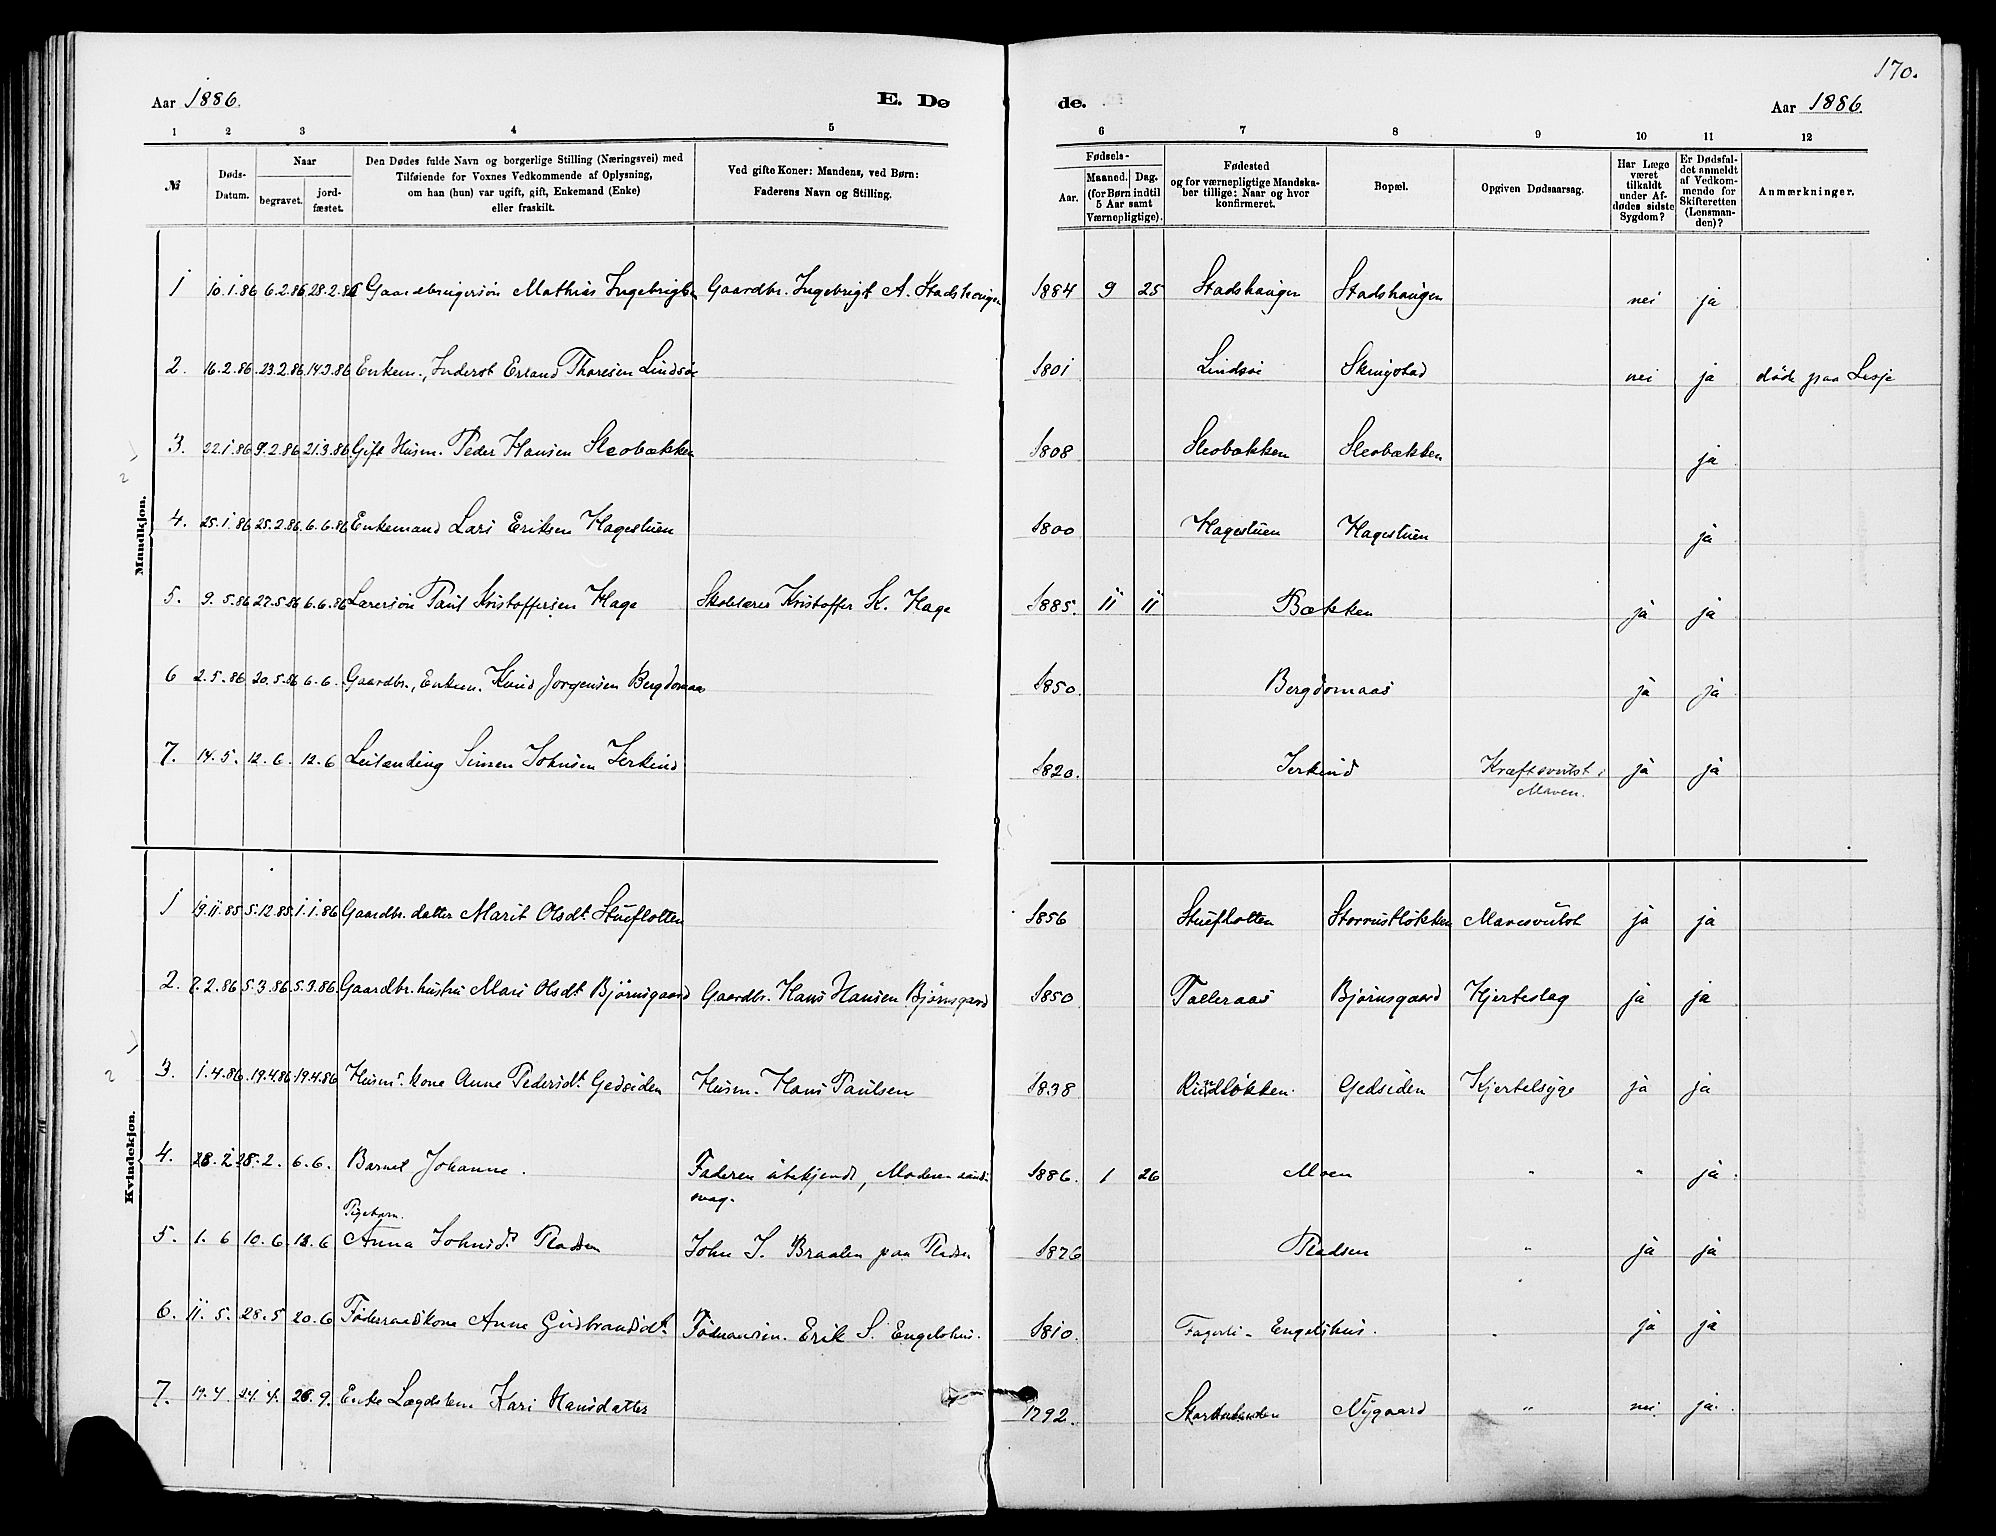 170.
Aar 1886.
E. Dø
de.
Aar 1886.
1 2 3 4 5 6 7 8 9 10 11 12
№
Døds-Datum.
Naar
begravet.
jord-fæstet.
Den Dødes fulde Navn og borgerlige Stilling (Næringsvei) med
Tilføiende for Voxnes Vedkommende af Oplysning,
om han (hun) var ugift, gift, Enkemand (Enke)
eller fraskilt.
Ved gifte Koner: Mandens, ved Børn:
Faderens Navn og Stilling.
Fødsels-
Aar.
Maaned. Dag.
(for Børn indtil
5 Aar samt
Værnepligtige).
Fødested
og for værnepligtige Mandska-
ber tillige: Naar og hvor
konfirmeret.
Bopæl.
Opgiven Dødsaarsag.
Har Læge
været
tilkaldt
under Af-
dødes sidste
Sygdom?
Er Dødsfal-
det anmeldt
af Vedkom-
mende for
Skifteretten
(Lensman-
den)?
Anmærkninger.
Mandkjøn.
1 10.1.86 6.2.86 28.2.86 Gaardbrugersøn Mathias Ingebrigtsn Gaardbr. Ingebrigt A. Stadshaugen 1884 9 25 Stadshaugen Stadshaugen nei ja
2. 16.2.86 23.2.86 14.3.86 Enkem., Inderst Erland Thoresen Lindsøe 1801 Lindsøi Skingstad nei ja døde paa Lesje
3. 22.1.86 9.2.86 21.3.86 Gift Husm. Peder Hansen Sleobækken 1808 Sleobækken Sleobækken ja
4. 25.1.86 25.2.86 6.6.86 Enkemand Lars Eriksen Hagestuen 1800 Hagestuen Hagestuen ja
5. 9.5.86 27.5.86 6.6.86 Lærersøn Paul Kristoffersen Hage Skolelærer Kristoffer K. Hage 1885. 11 11 Bækken ja ja
6 2.5.86 20.5.86 6.6. Gaardbr., Enkem. Knud Jørgensen Bergdomaas 1850. Bergdomaas ja ja
7. 14.5. 12.6. 12.6 Leilænding Simen Johnsen Jerkind 1820. Jerkind Kræftsvulst i
Maven. ja ja
Kvindekjøn.
1 19.11.85 5.12.85 1.1.86 Gaardbr. datter Marit Olsdt. Stueflotten 1856 Stueflotten Storrustløkken Mavesvulst ja ja
2. 2.86 5.3.86 5.3.86 Gaardbr. hustru Mari Olsdt. Bjørnsgaard Gaardbr. Hans Hansen Bjørnsgaard 1850 Tolleraas Bjørnsgaard Hjerteslag ja ja
3. 1.4.86 19.4.86 19.4.86 Husms. kone Anne Pedersdt. Gedsiden Husm. Hans Paulsen 1838 Gedsiden Kjertelsyge ja ja
4. 28.2 28.2. 6.6. Barnet Johanne. Faderen ubekjendt, Moderen sinds-
svag. 1886. 1 26 Moen " " ja
5. 1.6 10.6 12.6 Pigebarn.
Anna Johnsdt. Pladsen John J. Braaten paa Pladsen 1876 Pladsen " ja ja
6. 11.5. 28.5 20.6 Føderaadskone Anne Gudbrandsdt. Føderaadsm. Erik S. Engelshus. 1810. Fagerli - Engelshus. " ja ja
7. 19.4. 24.4. 26.9. Enke Lægdslem Kari Hansdatter 1792. Nygaard " nei ja.